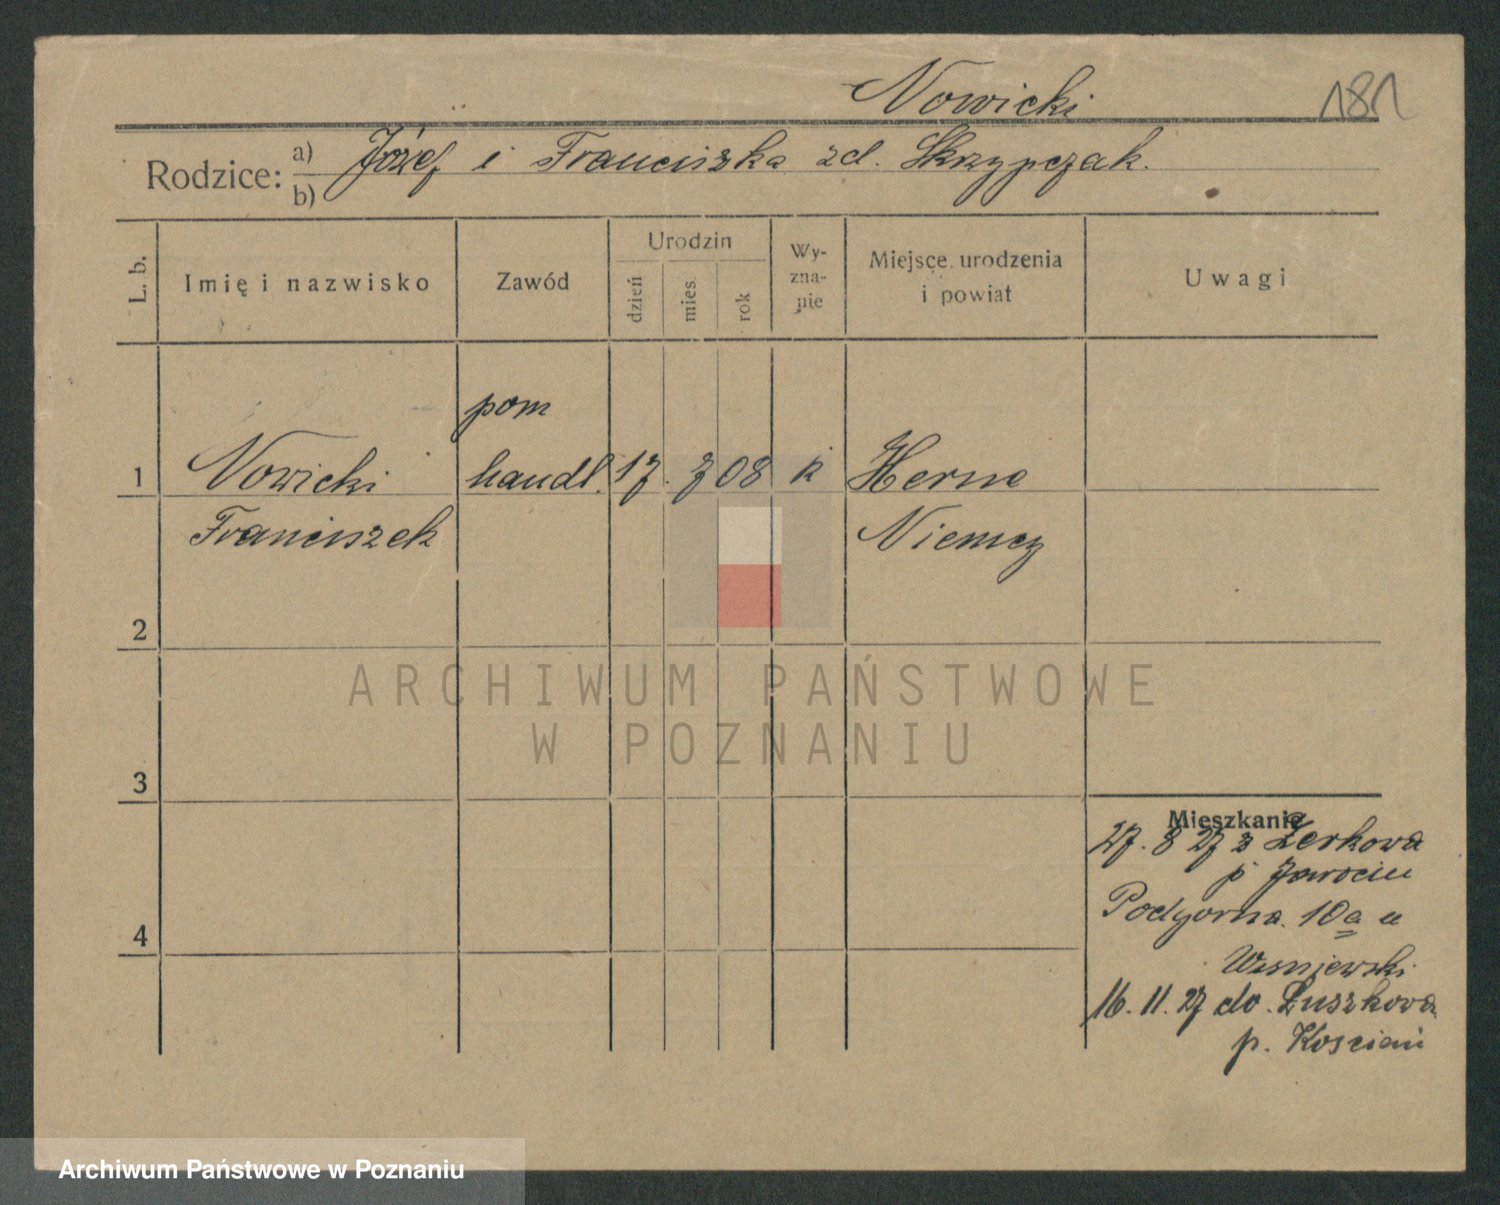 Nowicki
181
Rodzice: a) Józef i Franciszka zd. Skrzypczak.
b)
L. b.
Imię i nazwisko
Zawód
Urodzin
dzień
mies.
rok
Wy-
zna-
nie
Miejsce urodzenia
i powiat
Uwagi
pom
1 Nowicki handl. 17. 7 08 k Herne
Franciszek Niemcy
2
ARCHIWUM PAŃSTWOWE
W POZNANIU
3
Mieszkanie
27. 8 27 z Żerkowa
p Jarocin
4 Podgorna. 10a u
Wisniewski
16. 11. 27 do. Łuszkowa
p. Kościan
Archiwum Państwowe w Poznaniu